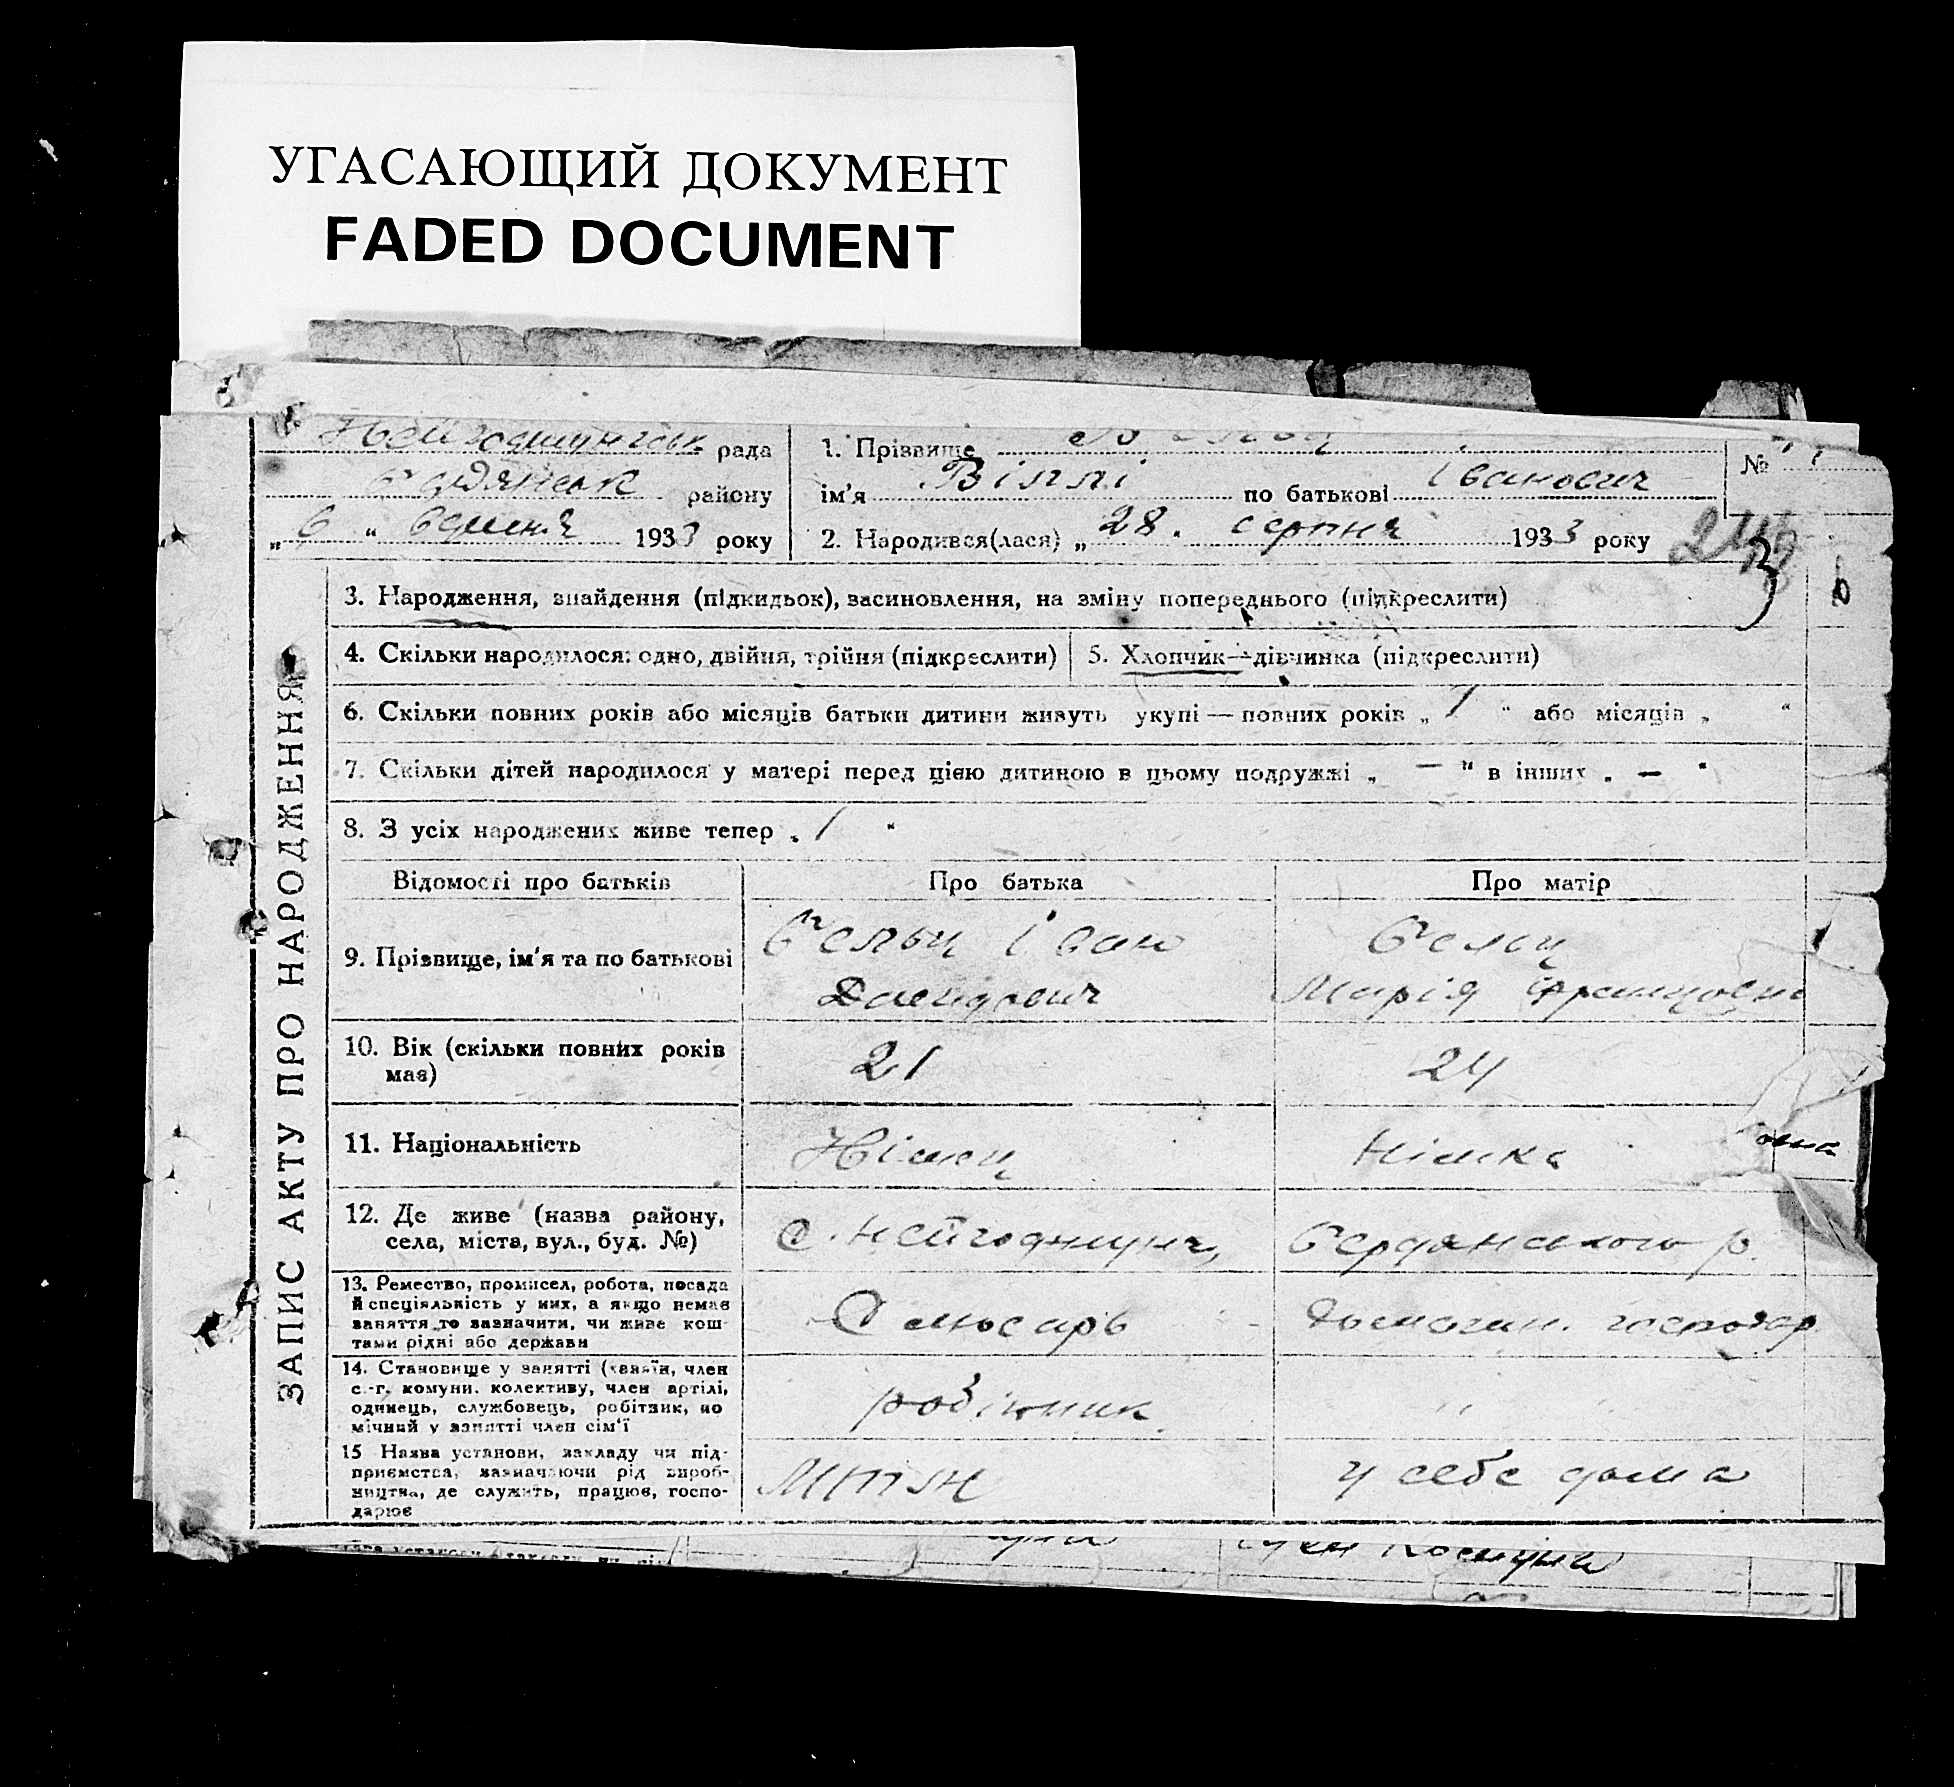 УГАСАЮЩИЙ ДОКУМЕНТ
FADED DOCUMENT
рада
району
„ 6 “ 1933 року
1. Прізвище
ім'я Віллі по батькові Іванович
2. Народився(лася) „ 28. серпня 1933 року
№
ЗАПИС АКТУ ПРО НАРОДЖЕННЯ
3. Народження, знайдення (підкидьок), засиновлення, на зміну попереднього (підкреслити)
4. Скільки народилося: одно, двійня, трійня (підкреслити)
5. Хлопчик—дівчинка (підкреслити)
6. Скільки повних років або місяців батьки дитини живуть укупі — повних років „ 1 “ або місяців „ “
7. Скільки дітей народилося у матері перед цією дитиною в цьому подружжі „ — “ в інших „ — “
8. З усіх народжених живе тепер „ 1 “
Відомості про батьків Про батька Про матір
9. Прізвище, ім'я та по батькові
Бельц Іван
Давидович
Бельц
Марія Францовна
10. Вік (скільки повних років
має)
21
24
11. Національність
Німец
Німка
12. Де живе (назва району,
села, міста, вул., буд. №)
Бердянського р.
13. Ремество, промисел, робота, посада
й спеціяльність у них, а якщо немає
заняття то зазначити, чи живе кош-
тами рідні або держави
Слюсарь
Домашн. господар
14. Становище у занятті (хазяїн, член
с.-г. комуни. колективу, член артілі,
одинець, службовець, робітник, по
мічний у занятті член сім'ї
робітник
" "
15 Назва установи, закладу чи під-
приємства, зазначаючи рід вироб-
ництва, де служить, працює, госпо-
дарює
у себе дома